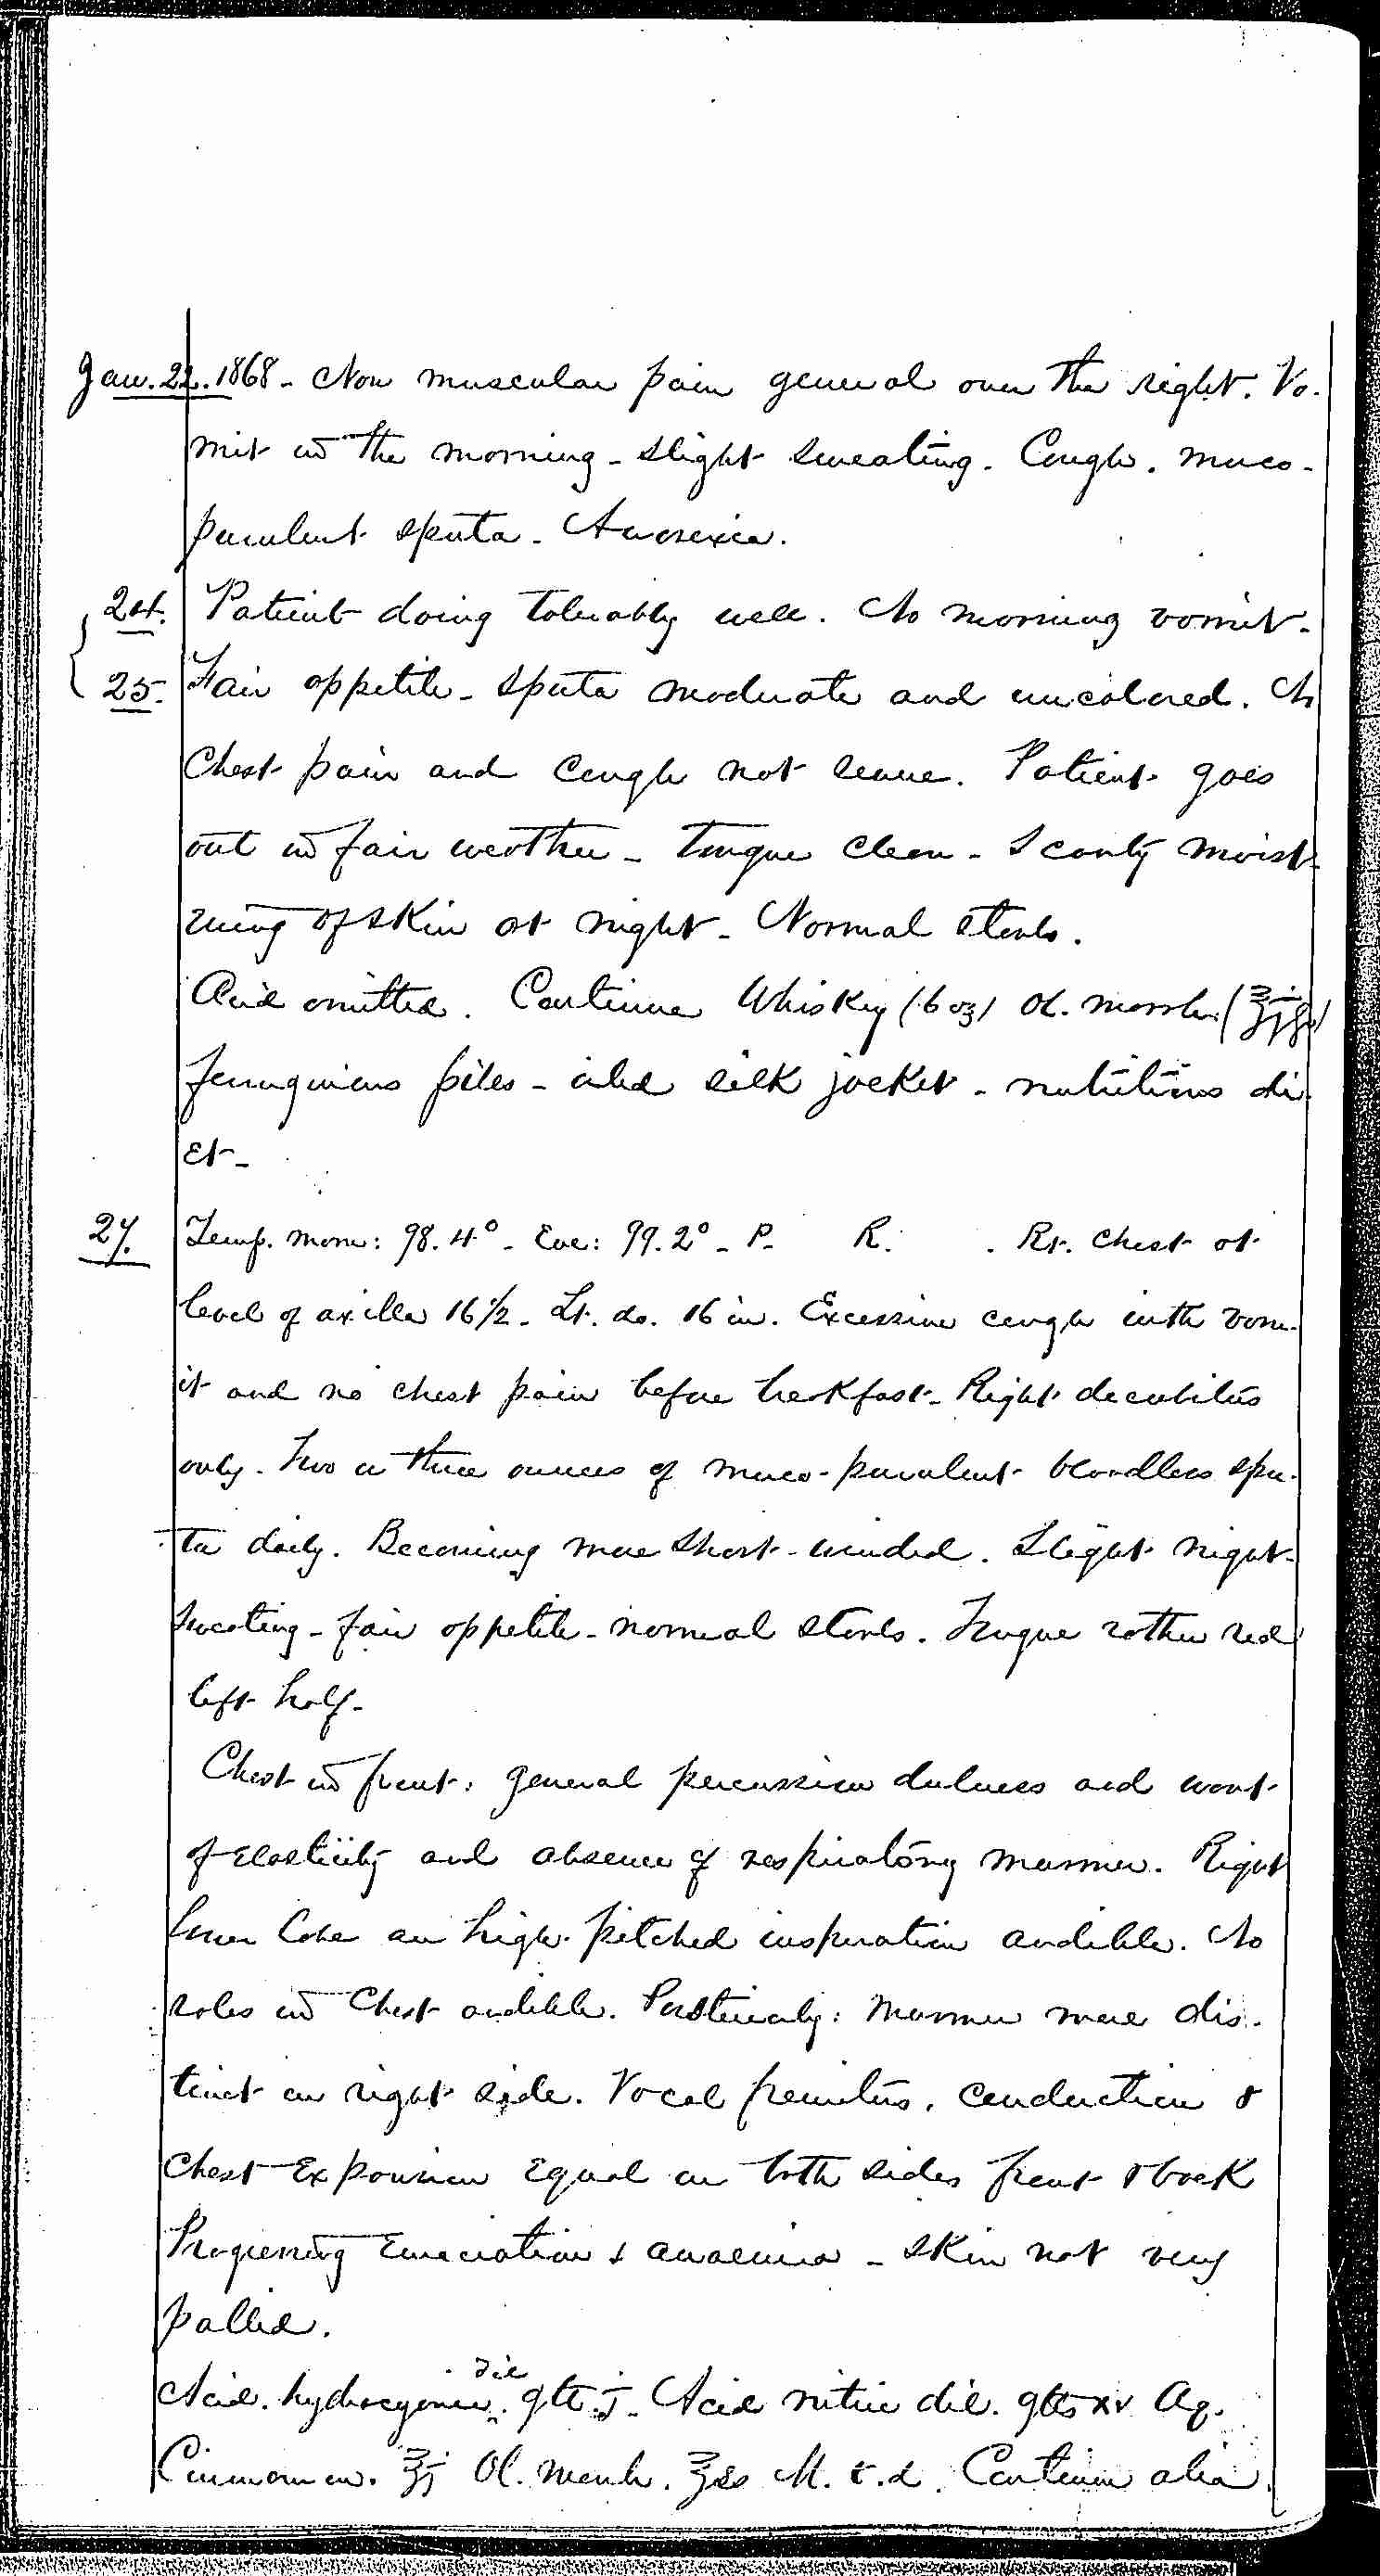 Jan. 22. 1868 - Now muscular pain general over the right. Vo-
mit in the morning - slight sweating. Cough. muco-
purulent sputa - Anorexia.
24. Patient doing tolerably well. No morning vomit.
25. Fair appetite - sputa moderate and uncolored. No
chest pain and cough not severe. Patient goes
out in fair weather - tongue clean - Scanty moist-
ening of skin at night - Normal stools.
Acid omitted. Continue Whiskey (6 oz) Ol. morrh. (
ferruginous pills - oiled silk jacket - nutritious di-
et -
27. Temp. morn: 98.4° - Eve: 99.2° - P. R. . Rt. chest at
level of axilla 16 1/2 - Lt. do. 16 in. Excessive cough with vom-
it and no chest pain before brekfast - Right decubitus
only. Two or three ounces of muco-purulent bloodless spu-
ta daily. Becoming more short-winded. Slight night-
sweating - fair appetite - normal stools. Tongue rather red
left half -
Chest in front: general percussion dulness and want
of elasticity and absence of respiratory murmur. Right
lower lobe an high-pitched inspiration audible. No
rales in chest audible. Posteriorly: murmur more dis-
tinct on right side. Vocal fremitus, conduction &
chest expansion equal on both sides front & back
Progressing emaciation & anaemia - skin not very
pallid.
Acid. hydrocyanic. dil gtt. j - Acid nitric dil. gtts xv Aq.
Cinnamon. ʒj Ol. morrh. ʒss M. t.d. Continue alia.